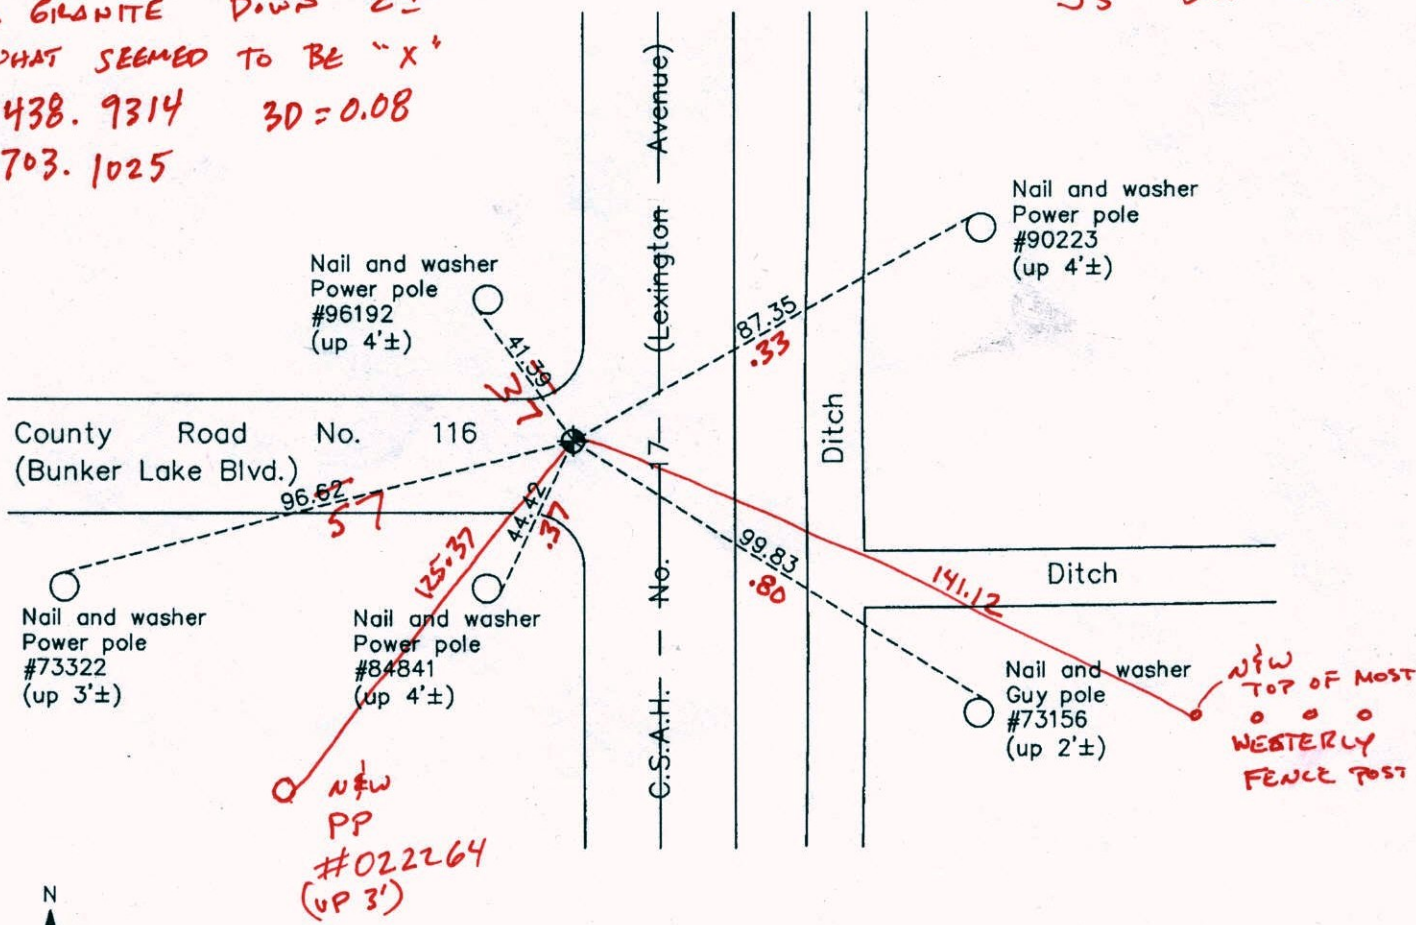 GRANITE DOWN 2±
WHAT SEEMED TO BE "X"
438.9314 3D=0.08
703.1025
Nail and washer
Power pole
#90223
(up 4'±)
Nail and washer
Power pole
#96192
(up 4'±)
C.S.A.H. No. 17 (Lexington Avenue)
87.35
.33
41.39
Ditch
County Road No. 116
(Bunker Lake Blvd.)
96.62
57
44.42
.37
125.37
99.83
.80
141.12
Ditch
Nail and washer
Power pole
#73322
(up 3'±)
Nail and washer
Power pole
#84841
(up 4'±)
Nail and washer
Guy pole
#73156
(up 2'±)
N&W
TOP OF MOST
WESTERLY
FENCE POST
N&W
PP
#022264
(UP 3')
N